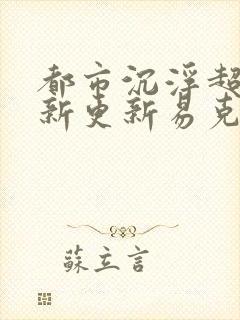 都市沉浮超
新更新易克
蘇立言